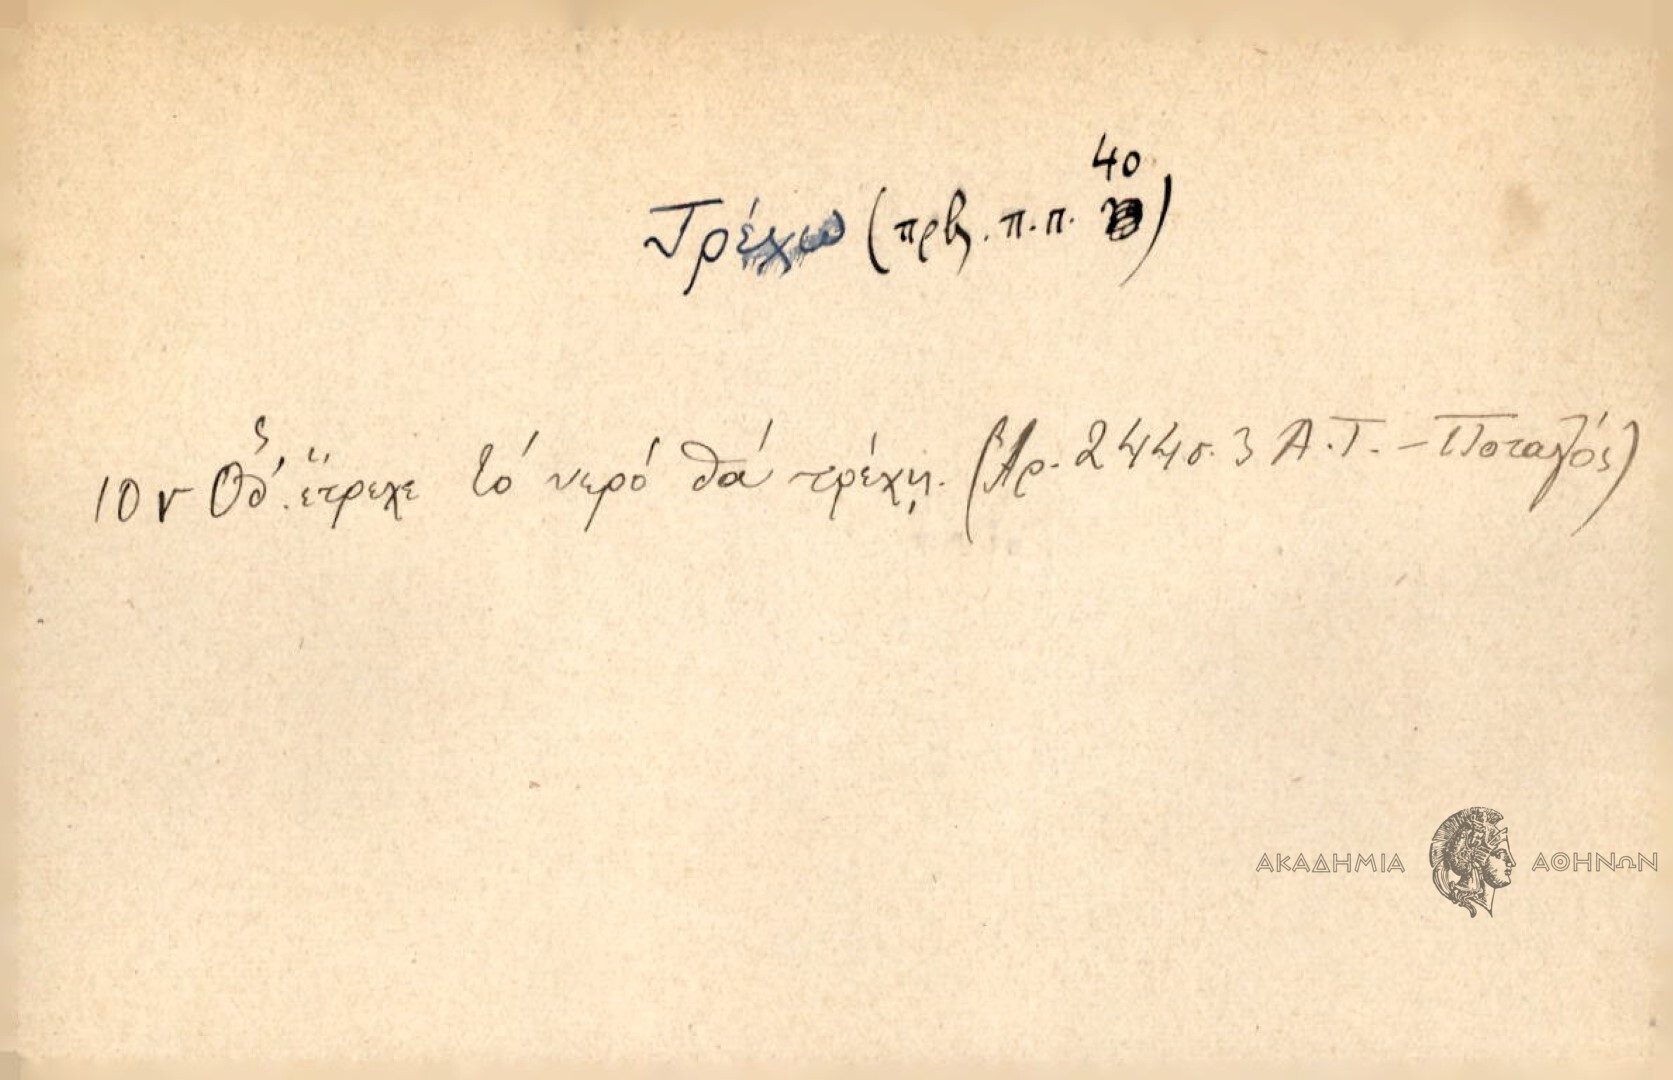 40
Τρέχω (πρβ. π.π. )
10ν Ὅθ' ἔτρεχε τό νερό θά τρέχῃ. (Ἀρ. 244 σ. 3 Α.Τ. – Ποταμός)
ΑΚΑΔΗΜΙΑ ΑΘΗΝΩΝ